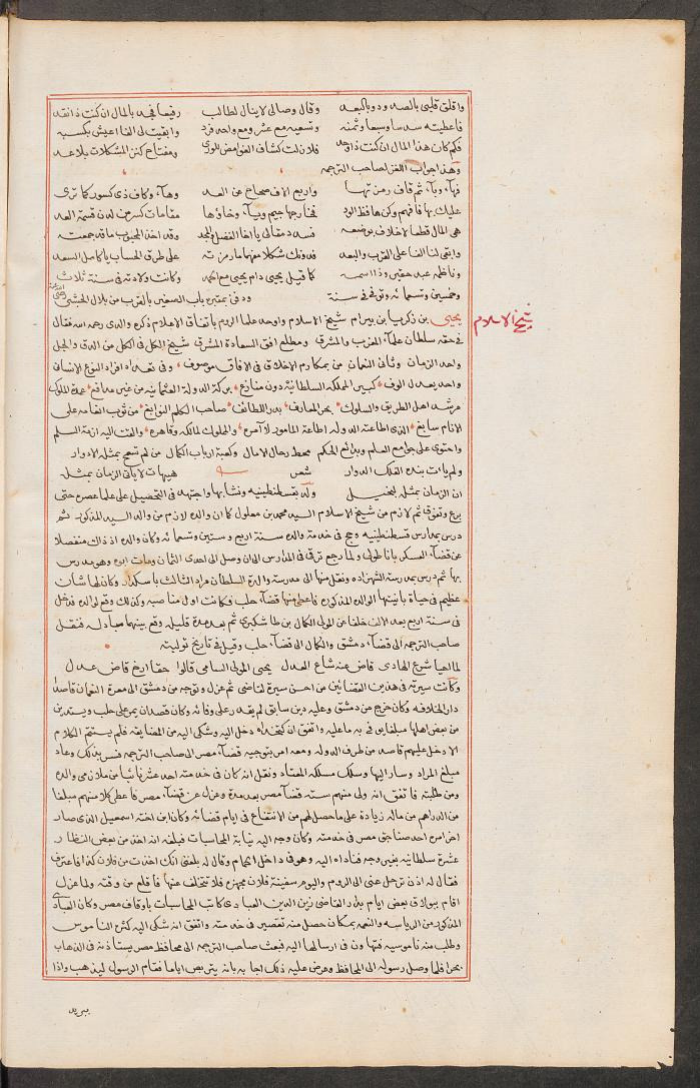 واقلق قلبي بالصد ودو بالبعد وقال وصالي لا ينال لطالب رفيعا فجد بالمال ان كنت ذا نقد
فاعطيته سدسا وسبعا وثمنه وتسعيه مع عشر ومع واحد فرد وابقيت لي الفا اعيش بكسبه
فكم كان هذا المال ان كنت ذا حد فلازلت كشاف الغوامض للورى ومفتاح كنز المشكلات بلا عد
وهذا جواب اللغز لصاحب الترجمه
فهاء وباء ثم قاف رمزتها واربع الاف صحاح عن العد وهاء وكاف ذي كسور كما ترى
عليك بها فافهم وكن حافظ الود فمخارجها جيم وباء وخاؤها مقامات كسر من لدن قسمة العد
هي المال قطعا لا خلاف بوضعه فسدد مقالي يا اخا الفضل والمجد وقد اخذ المحبوب ما قد جمعت
وابقى لنا الفا على القرب والبعد فدونك شكلا مبهما رمزته على طريق الحساب يا كامل السعد
وناظمه عبد حقير وذا اسمه كما قيل يحيى دام يحيى مع الحمد وكانت ولادته في سنة ثلاث
وخمسين وتسعمائة وتوفي في سنة ودفن بمقبرة باب الصغير بالقرب من بلال الحبشي
شيخ الاسلام
يحيى بن زكريا بن بيرام شيخ الاسلام واوحد علما الروم باتفاق الاعلام ذكره والدي رحمه الله فقال
في حقه سلطان علماء المغرب والمشرق ومطلع افق السعادة المشرق شيخ الكل في الكل من الدق والجل
واحد الزمان وثاني النعمان من بمكارم الاخلاق في الافاق موصوف وفي تعداد افراد النوع الانسان
واحد يعدل الوف كبير المملكه السلطانية دون منازع بركة الدولة العثمانيه من غير مدافع عمدة الملوك
مرشد اهل الطريق والسلوك بحر المعارف بدر اللطائف صاحب الكلم النوابغ من ثوب انعامه على
الانام سابغ الذي اطاعته الدوله اطاعة المامور لآمره والملوك لمالكه وقاهره والقت اليه ازمة السلم
واحتوى على جوامع العلم وبدائع الحكم محط رحال الامال وكعبة ارباب الكمال من لم تسمح بمثله الادوار
ولم يات بنده الفلك الدوار شعر هيهات لا ياتي الزمان بمثله
ان الزمان بمثله لبخيل ولد بقسطنطينيه ونشا بها واجتهد في التحصيل على علما عصره حتى
برع وتفوق ثم لازم من شيخ الاسلام السيد محمد بن معلول كما ان والده لازم من والد السيد المذكور ثم
درس بمدارس قسطنطينيه وحج في خدمة والده سنة اربع وستين وتسعمائة وكان والده اذ ذاك منفصلا
عن قضاء العسكر باناطولي ولما رجع ترقى في المدارس الى ان وصل الى احدى الثمان ومات ابوه وهو مدرس
بها ثم درس بمدرسة الشهزاده ونقل منها الى مدرسة والدة السلطان مراد الثالث باسكدار وكان لها شان
عظيم في حياة بانيتها الوالده المذكوره فاعطي منها قضاء حلب فكانت اول مناصبه وكذلك وقع لوالده فدخل
في سنة اربع بعد الالف خلفا عن المولى الكمال بن طاشكبري ثم بعد مدة قليله وقع بينهما مبادله فنقل
صاحب الترجمه الى قضاء دمشق والكمال الى قضاء حلب وقيل في تاريخ توليته
لما احيا شرع الهادي قاض عنه شاع العدل يحيى المولى السامي قالوا حقا ارخ قاض عدل
وكانت سيرته في هذين القضائين من احسن سيرة لقاضي ثم عزل وتوجه من دمشق الى معرة النعمان قاصدا
دار الخلافه وكان خرج من دمشق وعليه دين سابق لم يقدر على وفائه وكان قصد ان يمر على حلب ويستدين
من بعض اهلها مبلغا يوفي به ما عليه واتفق ان كتخداه دخل اليه وشكى اليه من المضايقه فلم يستتم الكلام
الا دخل عليهم قاصد من طرف الدوله ومعه امر بتوجيه قضاء مصر الى صاحب الترجمه فسر بذلك وعاد
مبلغ المراد وسار اليها وسلك مسلكه المعتاد ونقل انه كان في خدمته احد عشر نائبا من ملازمي والده
ومن طلبته فاتفق انه ولى منهم ستة قضاء مصر بعد مدة وعزل عن قضاء مصر فاعطى كلا منهم مبلغا
من الدراهم من ماله زيادة على ما حصل لهم من الانتفاع في ايام قضائه وكان ابن اخته اسمعيل الذي صار
اخر امره احد صناجق مصر في خدمته وكان وجه اليه نيابة المحاسبات فبلغه انه اخذ من بعض النظار
عشرة سلطانية بغير وجه فناداه اليه وهو في داخل الحمام وقال له بلغني انك اخذت من فلان كذا فاعترف
فقال له اذن ترحل عني الى الروم واليوم سفينة فلان مجهزه فلا تتخلف عنها فاقلع من وقته ولما عزل
اقام ببولاق بعض ايام بدار القاضي زين الدين العبادي كاتب المحاسبات باوقاف مصر وكان العبادي
المذكور من الرياسه والنعمه بمكان حصل منه تقصير في خدمته واتفق انه شكى اليه كثرة الناموس
وطلب منه ناموسيه فتهاون في ارسالها اليه فبعث صاحب الترجمه الى محافظ مصر يستاذنه في الذهاب
بحرا فلما وصل رسوله الى المحافظ وعرض عليه ذلك اجابه بانه يتربص اياما فقام الرسول ليذهب واذا